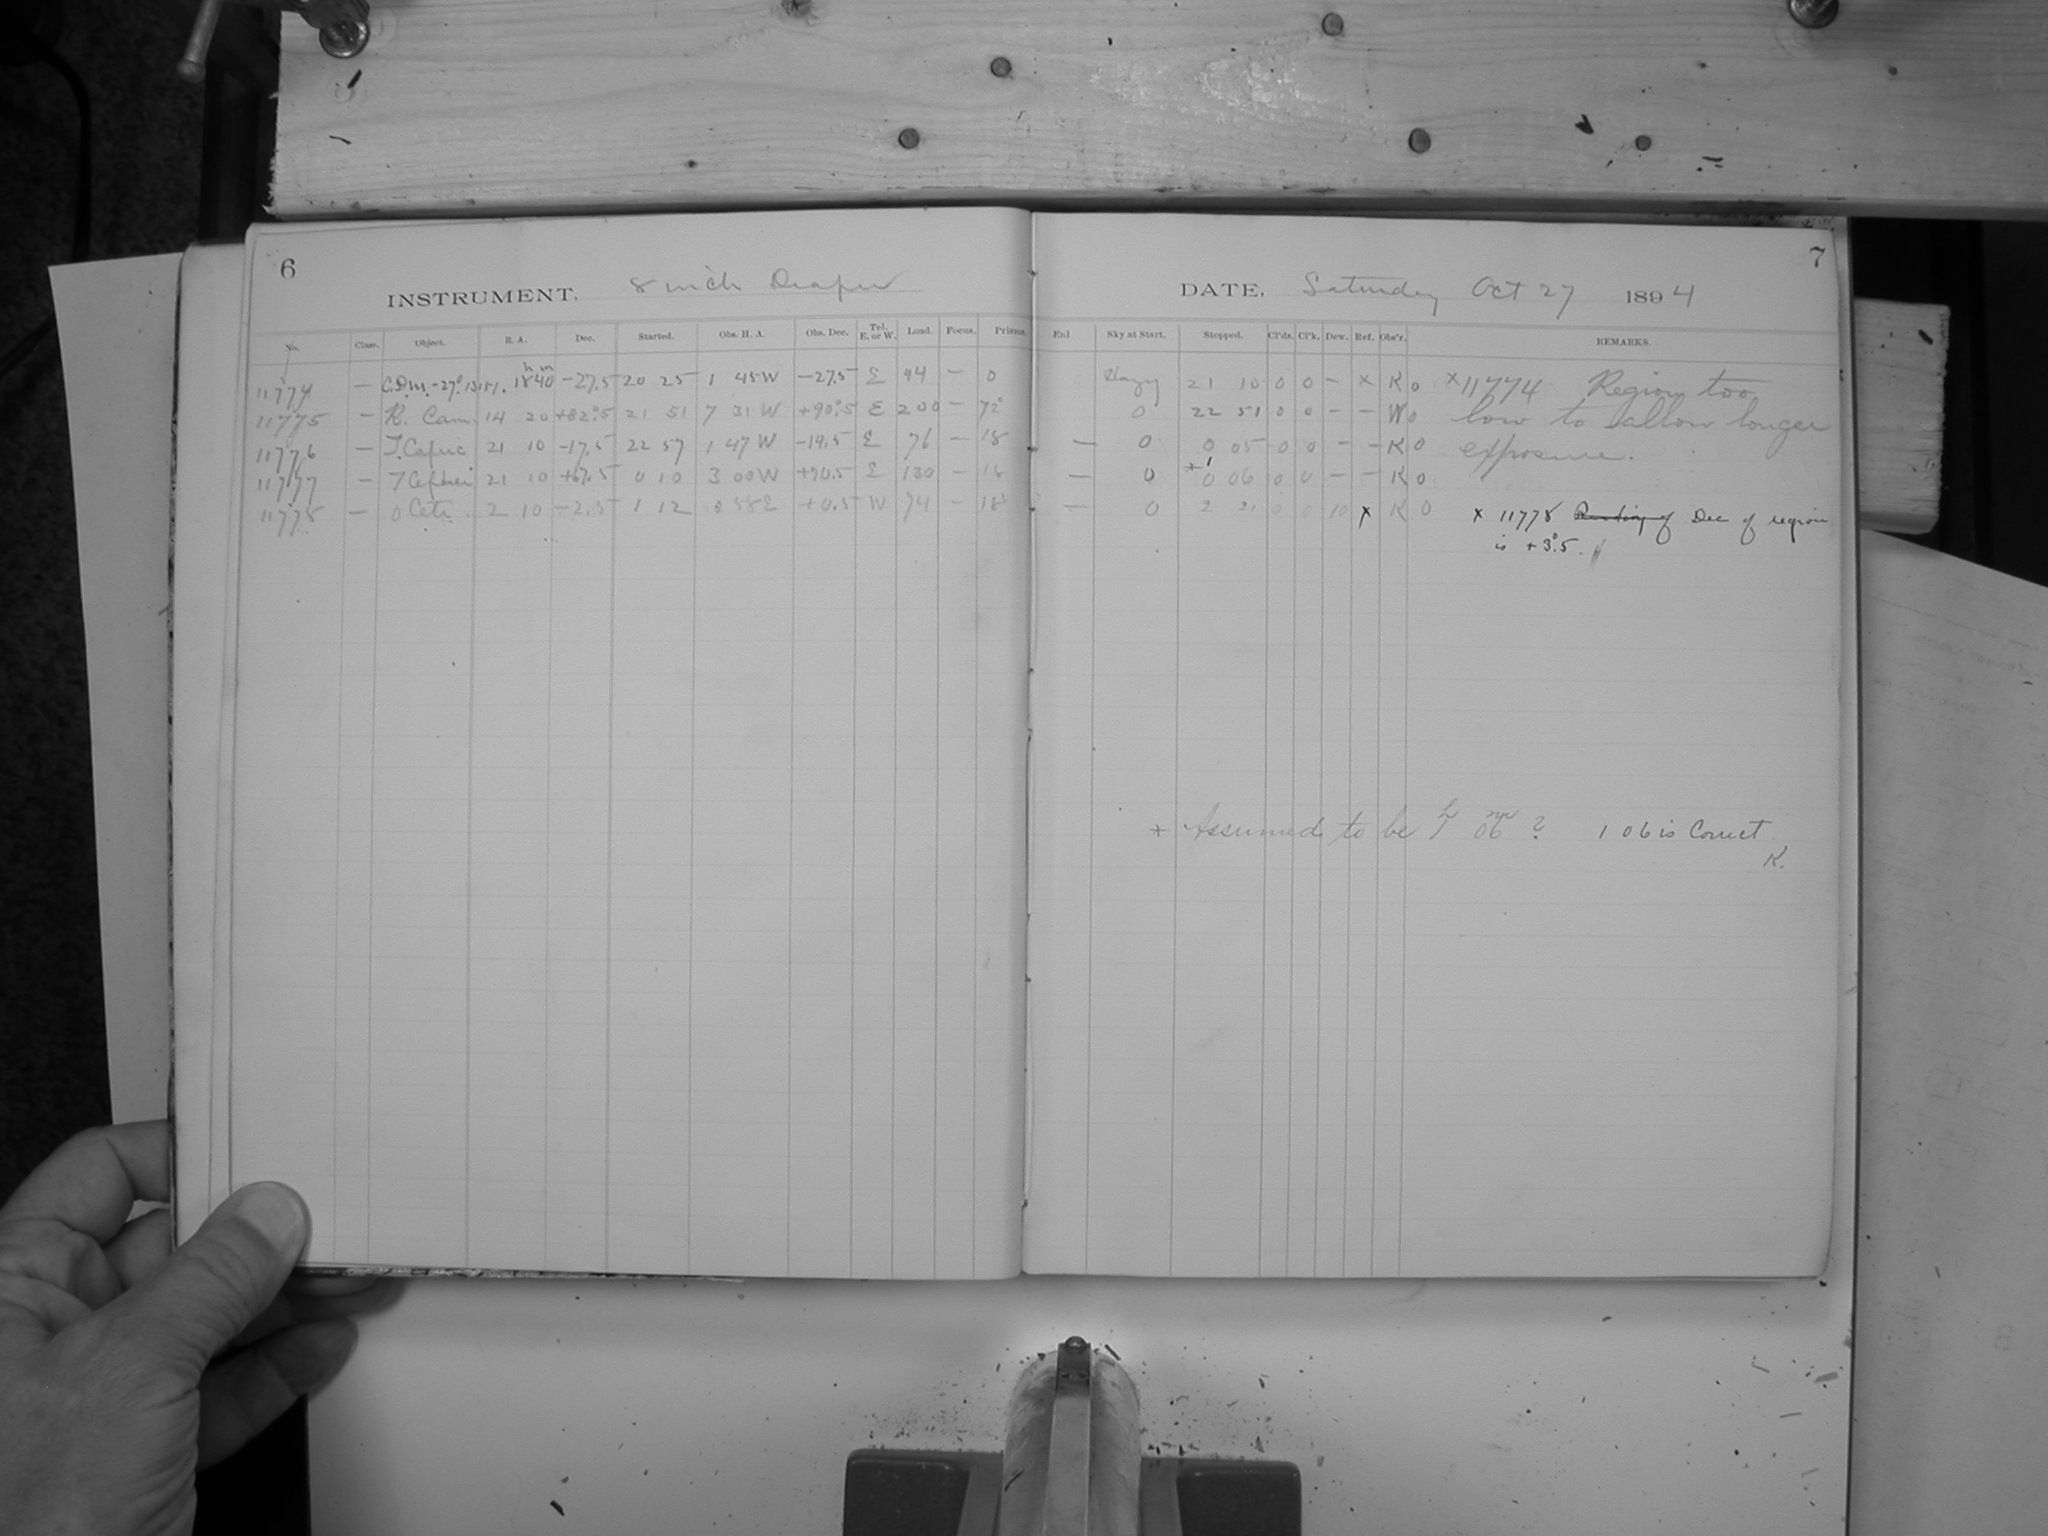 6
INSTRUMENT, 8 inch Draper
No. Class. Object. R. A. Dec. Started. Obs. H. A. Obs. Dec. Tel. E. or W. Load. Focus. Prisms.
11774 — C.D.M. -27° 13151. 18h 40m -27.5 20 25 1 45 W -27.5 E 94 — 0
11775 — R. Cam. 14 20 +82°.5 21 51 7 31 W +90°.5 E 200 — 72°
11776 — T. Capric 21 10 -17.5 22 57 1 47 W -14.5 E 76 — 18
11777 — T Cephei 21 10 +67.5 0 10 3 00 W +70.5 E 130 — 18
11778 — o Ceti 2 10 -2.5 1 12 0 58 E +0.5 W 74 — 18
7
DATE, Saturday Oct 27 1894
Enl Sky at Start. Stopped. Cl'ds. Cl'k. Dew. Ref. Obs'r. REMARKS.
Hazy 21 10 0 0 — x K 0 x 11774 Region too
0 22 51 0 0 — — W 0 low to allow longer
— 0 0 05 0 0 — — K 0 exposure.
— 0 * 1 0 06 0 0 — — K 0
— 0 2 21 0 0 10 x K 0 x 11778 Reading of Dec of region
is +3°.5.
* Assumed to be 1h 06m ? 1 06 is Correct
K.